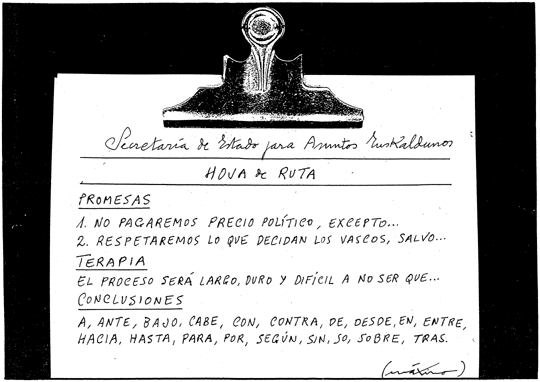 Secretaría de Estado para Asuntos Euskaldunos
HOJA de RUTA
PROMESAS
1. NO PAGAREMOS PRECIO POLÍTICO, EXCEPTO...
2. RESPETAREMOS LO QUE DECIDAN LOS VASCOS, SALVO...
TERAPIA
EL PROCESO SERÁ LARGO, DURO Y DIFÍCIL A NO SER QUE...
CONCLUSIONES
A, ANTE, BAJO, CABE, CON, CONTRA, DE, DESDE, EN, ENTRE,
HACIA, HASTA, PARA, POR, SEGÚN, SIN, SO, SOBRE, TRAS.
(máximo)